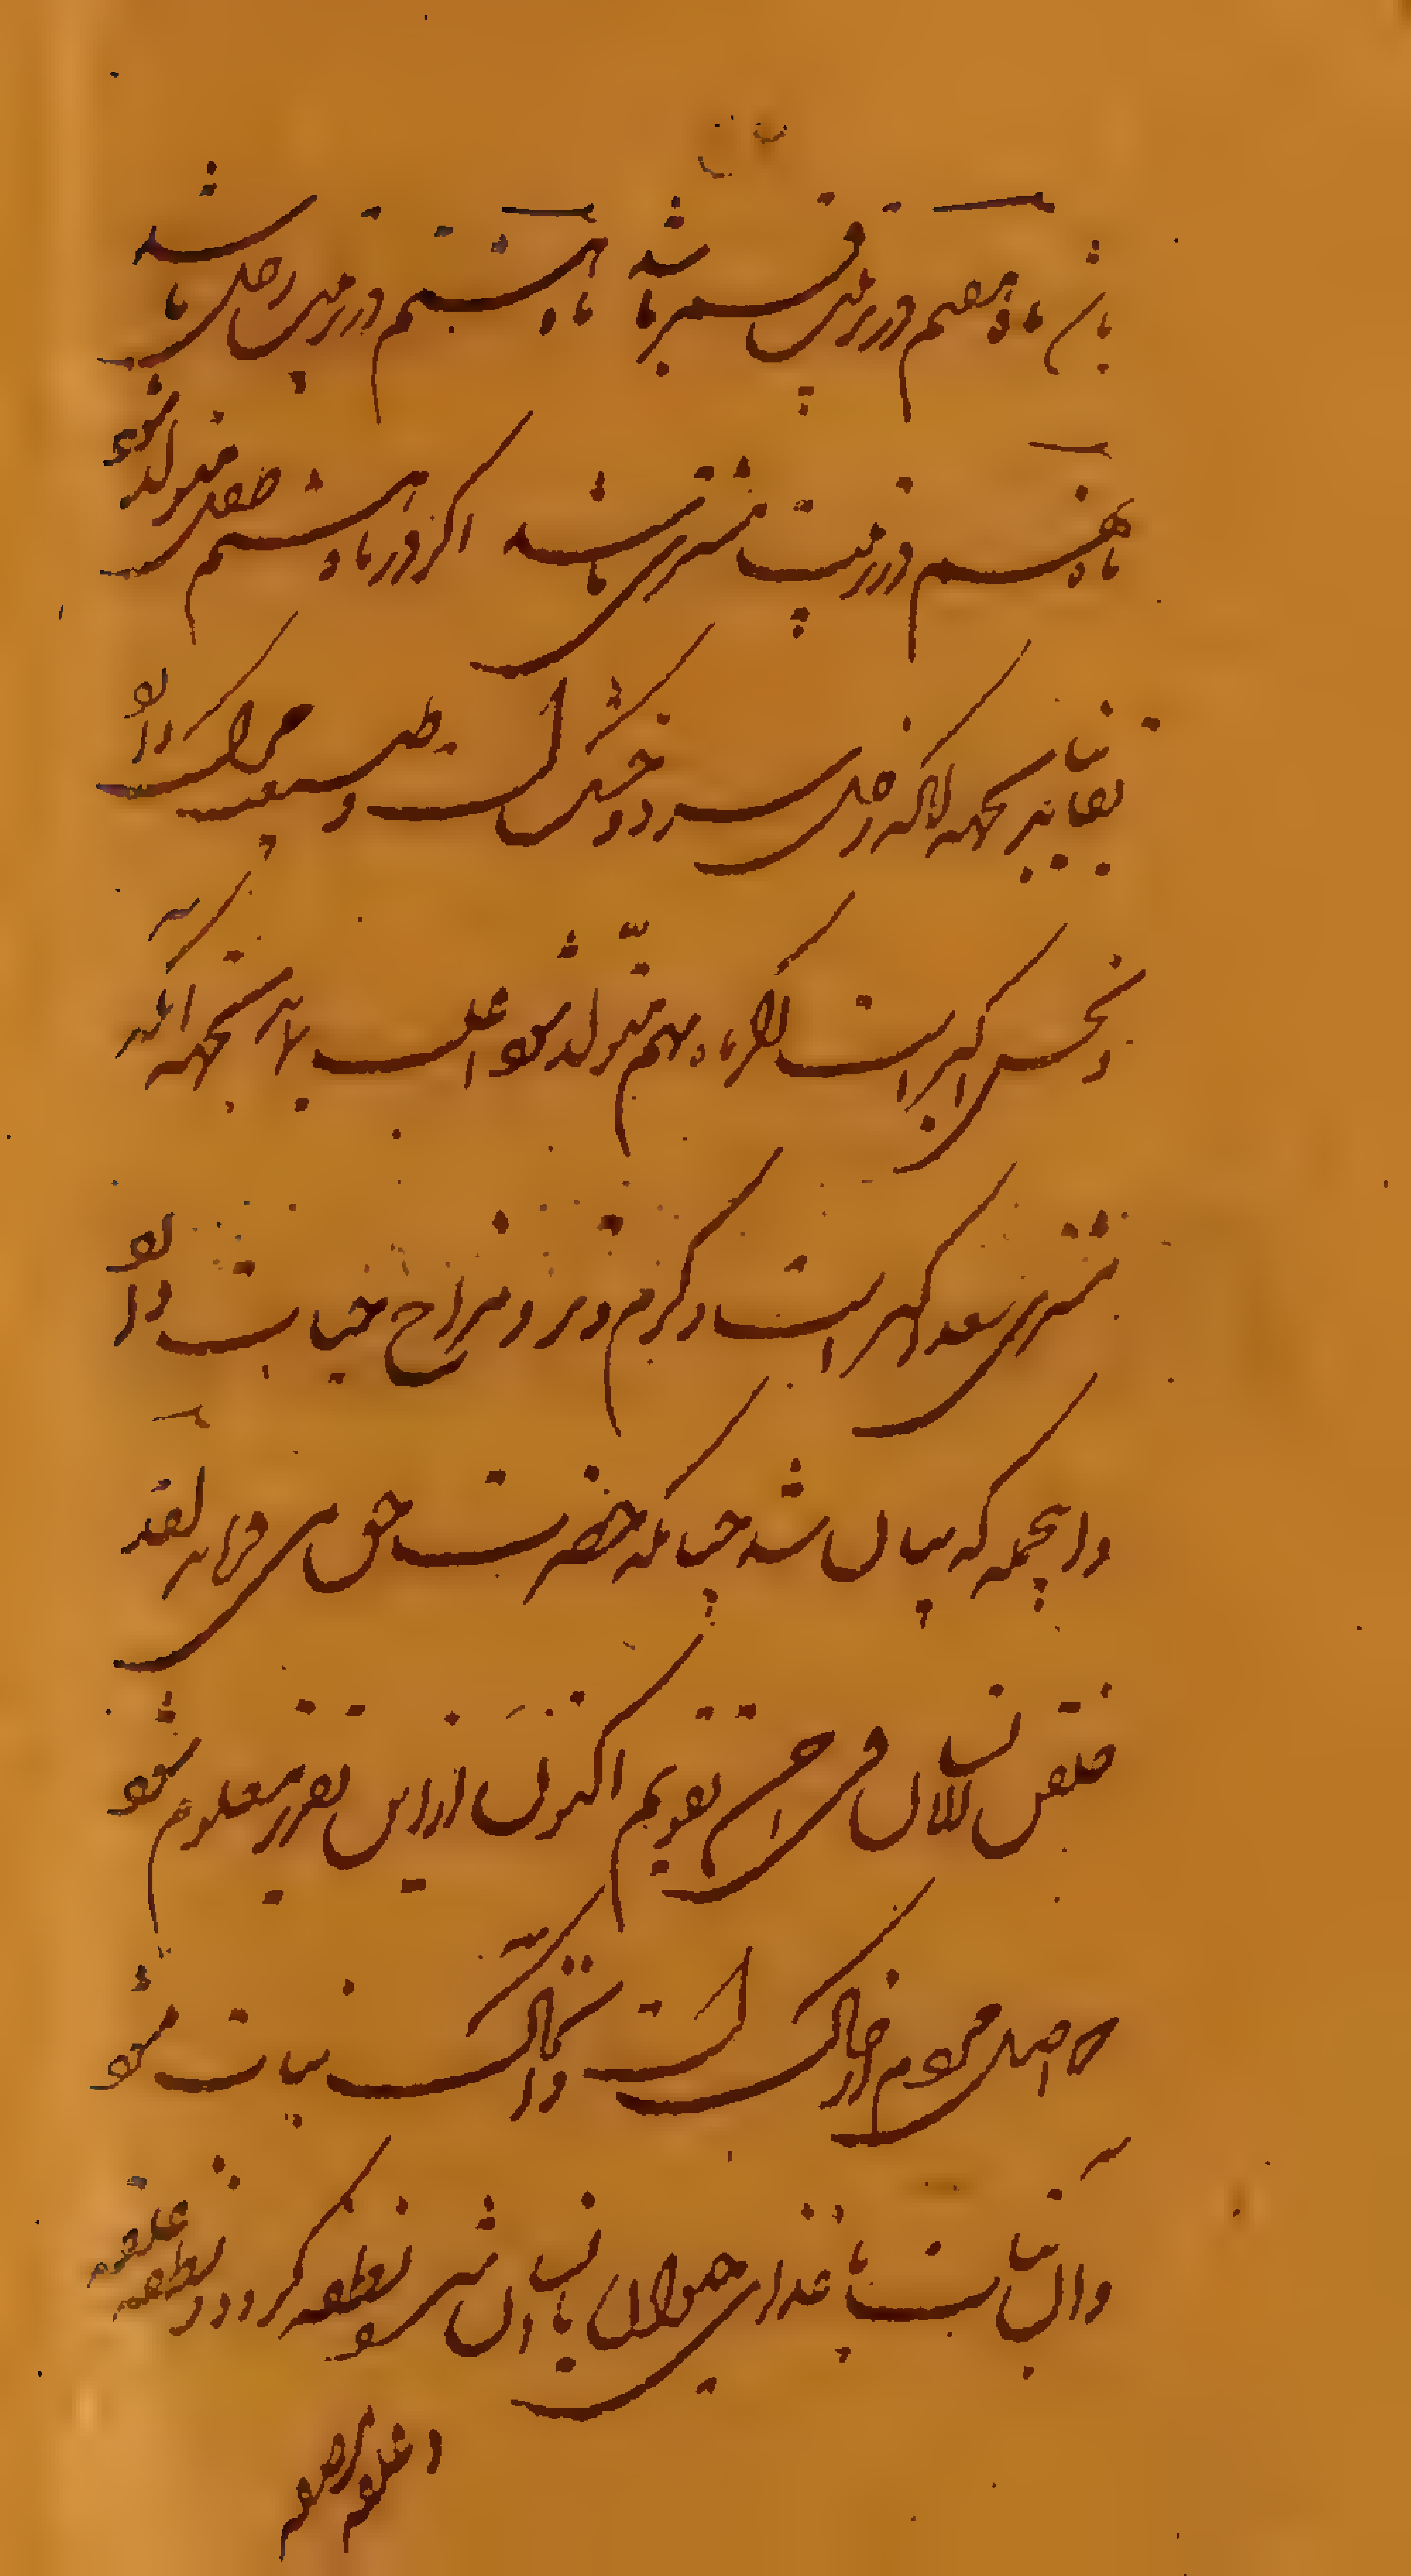 باشد ماه هفتم در تربیت قمر باشد ماه هشتم در تربیت زحل باشد
ماه نهم در تربیت مشتری باشد اگر در ماه هشتم طفل متولد شود
بقا نیابد بجهة آنکه زحل سرد و خشک است و طبیعت مرگ دارد
و نحس اکبر است اگر ماه نهم متولد شود اغلب بماند بجهة آنکه
مشتری سعد اکبر است و گرم و تر و مزاج حیات دارد
و اینجمله که بیان شد چنانکه حضرت حق می فرماید لقد
خلقنا الانسان فی احسن تقویم اکنون از این تقریر معلوم شود
که اصل مردم از خاک است و آن خاک نبات شود
و آن نبات غذای حیوان یا انسان شود نطفه گردد و نطفه علقه
و علقه مضغه